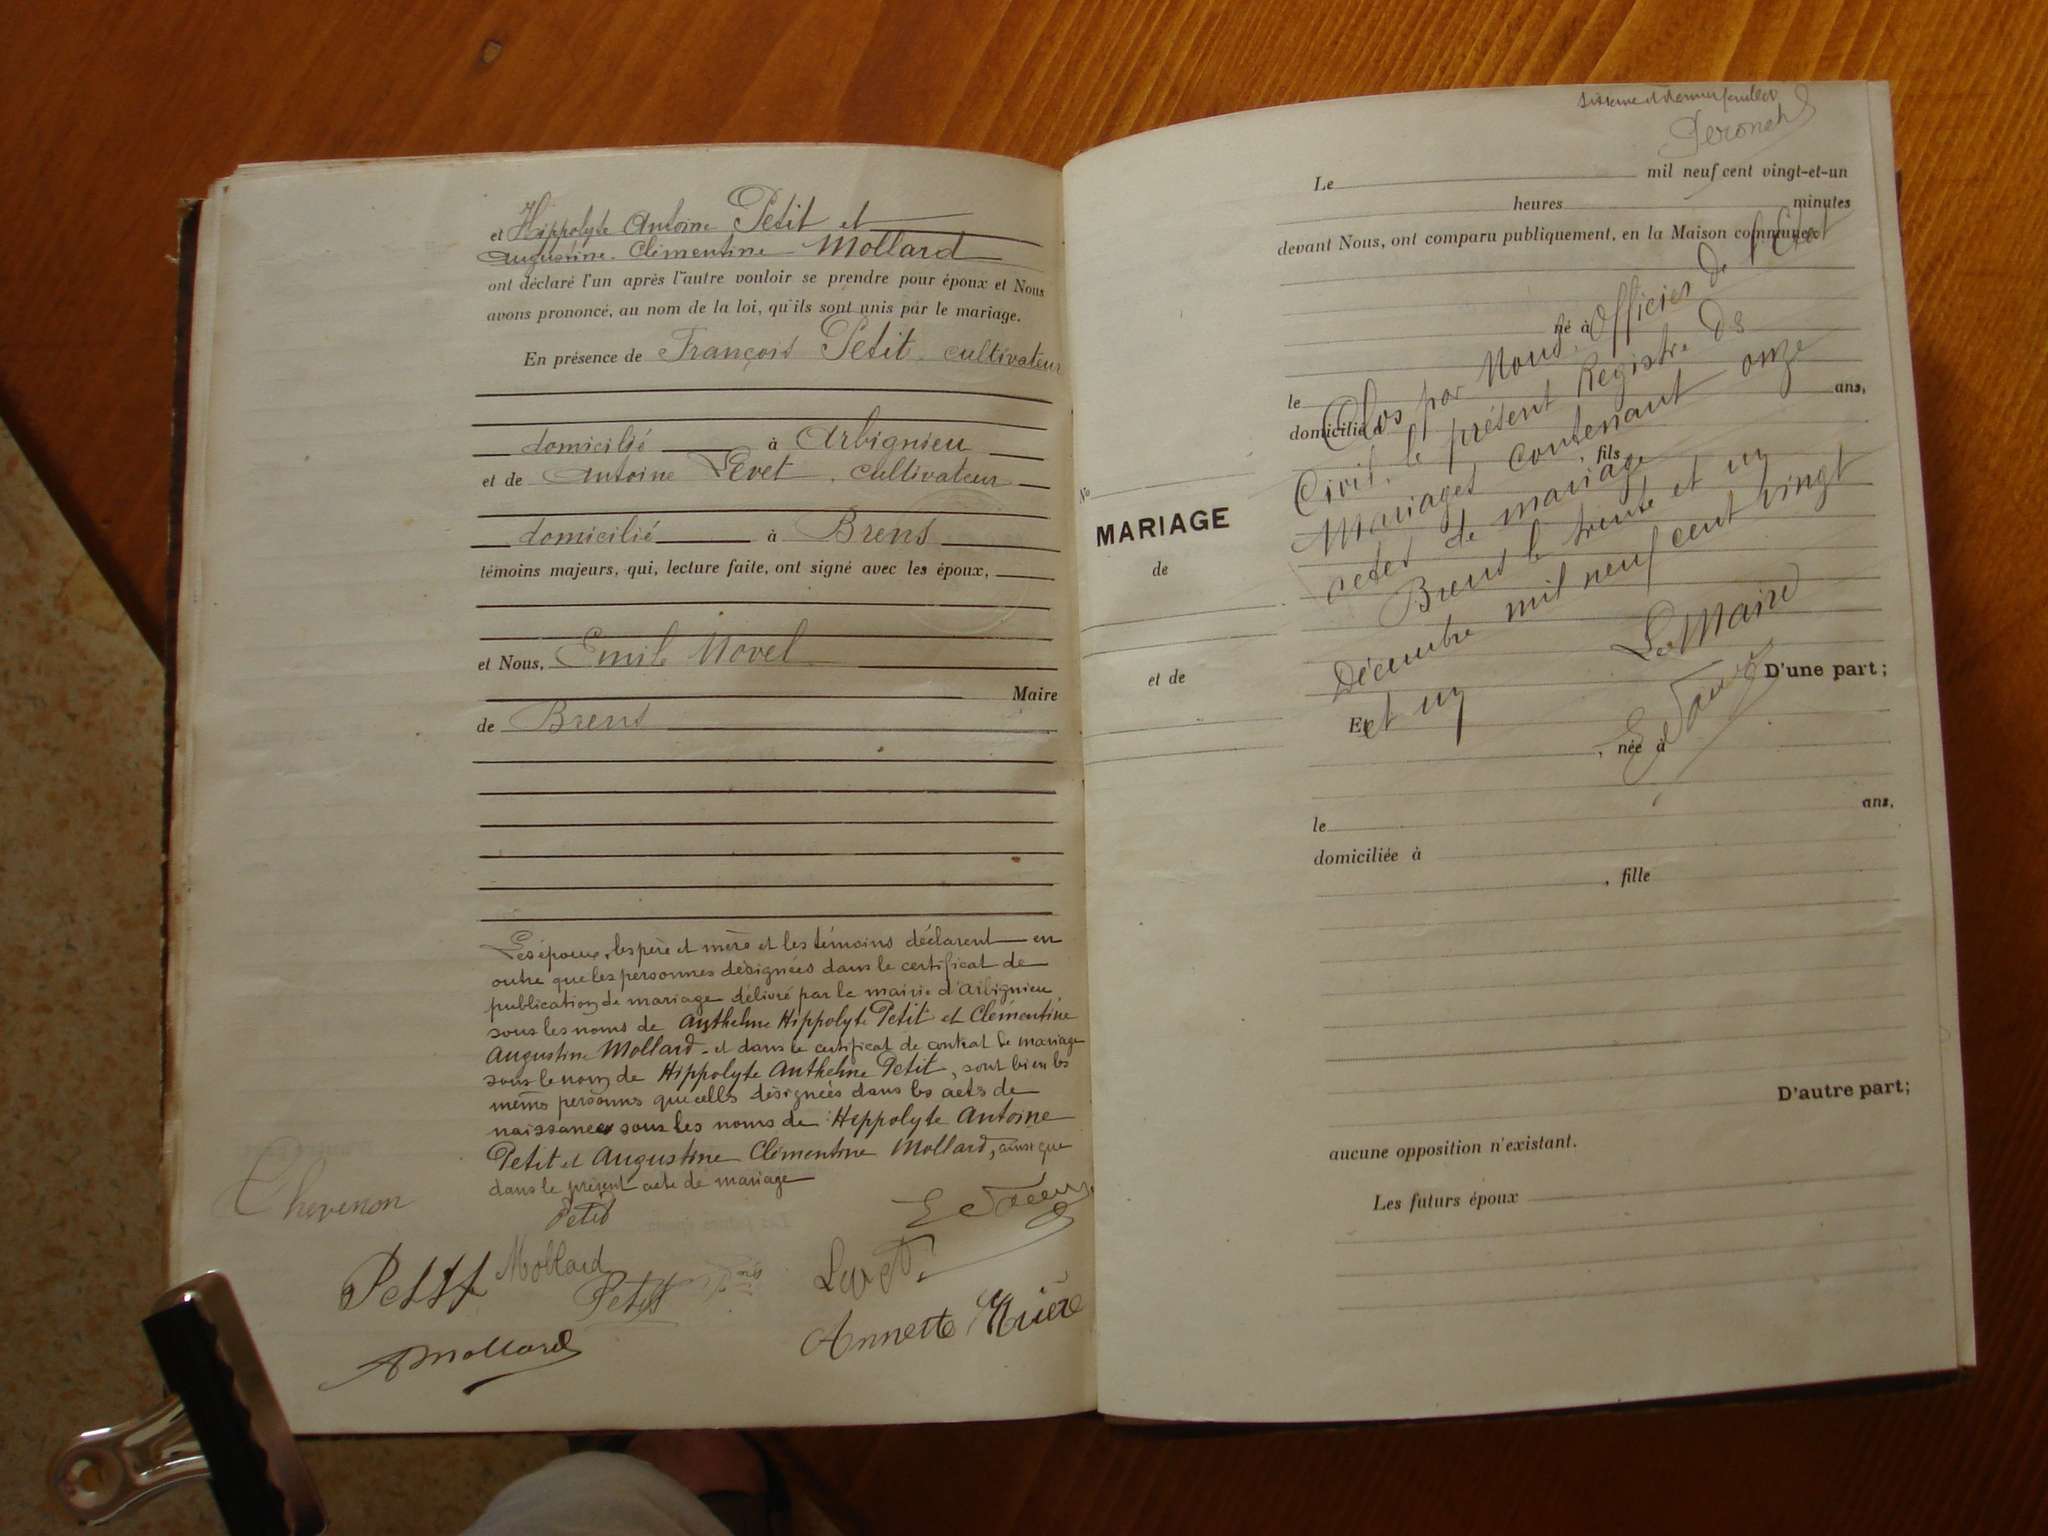 et Hippolyte Antoine Petit et
Augustine Clémentine Mollard
ont déclaré l'un après l'autre vouloir se prendre pour époux et Nous
avons prononcé, au nom de la loi, qu'ils sont unis par le mariage.
En présence de François Petit, cultivateur
domicilié à Arbignieu
et de Antoine Levet, cultivateur
domicilié à Brens
témoins majeurs, qui, lecture faite, ont signé avec les époux,
et Nous, Emile
Maire
de Brens
Les époux, les père et mère et les témoins déclarent en
outre que les personnes désignées dans le certificat de
publication de mariage délivré par la mairie d'Arbignieu
sous les noms de Anthelme Hippolyte Petit et Clémentine
Augustine Mollard et dans le certificat de contrat de mariage
sous le nom de Hippolyte Anthelme Petit, sont bien les
mêmes personnes que celles désignées dans les actes de
naissances sous les noms de Hippolyte Antoine
Petit et Augustine Clémentine Mollard, ainsi que
dans le présent acte de mariage
Chevenon
Petit
Petit
Mollard
Petit
Levet
AMollard
Annette
sixième et dernier feuillet
Le mil neuf cent vingt-et-un
heures minutes
devant Nous, ont comparu publiquement, en la Maison commune:
né à
le ans,
domicilié à
fils
No
MARIAGE
de
et de
Clos par Nous, Officier de l'Etat
Civil, le présent Registre de
Mariages contenant onze
actes de mariage
Brens le trente et un
Décembre mil neuf cent vingt
et un
Le Maire
D'une part;
Et
, née à
le ans,
domiciliée à
, fille
D'autre part;
aucune opposition n'existant.
Les futurs époux